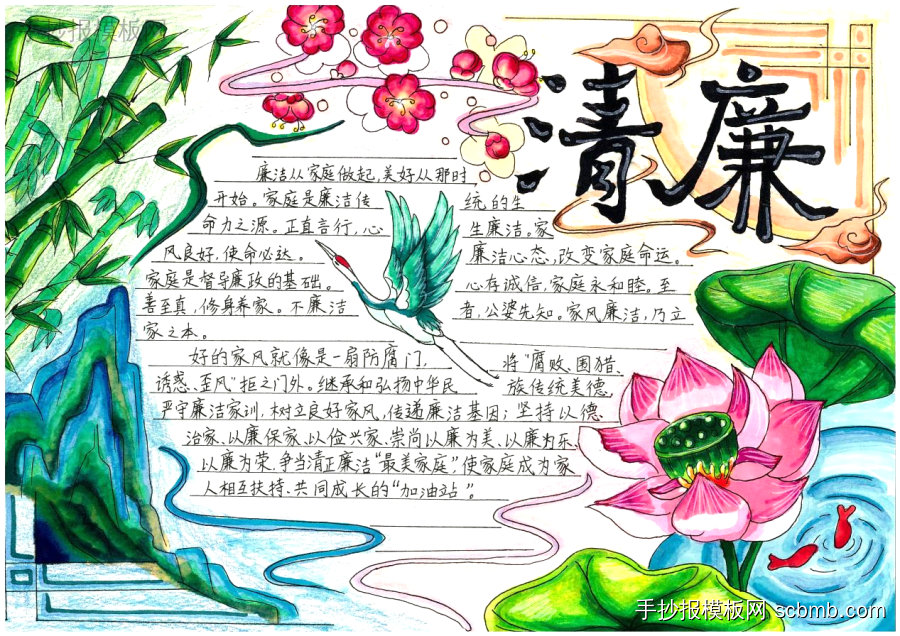 手抄报模板网
清廉
廉洁从家庭做起,美好从那时
开始。家庭是廉洁传统的生
命力之源。正直言行,心生廉洁。家
风良好,使命必达。廉洁心态,改变家庭命运。
家庭是督导廉政的基础。心存诚信,家庭永和睦。至
善至真,修身养家。不廉洁者,公婆先知。家风廉洁,乃立
家之本。
好的家风就像是一扇防腐门,将“腐败、围猎、
诱惑、歪风”拒之门外。继承和弘扬中华民族传统美德,
严守廉洁家训,树立良好家风,传递廉洁基因;坚持以德
治家、以廉保家、以俭兴家、崇尚以廉为美、以廉为乐、
以廉为荣、争当清正廉洁“最美家庭”,使家庭成为家
人相互扶持、共同成长的“加油站”。
手抄报模板网 scbmb.com